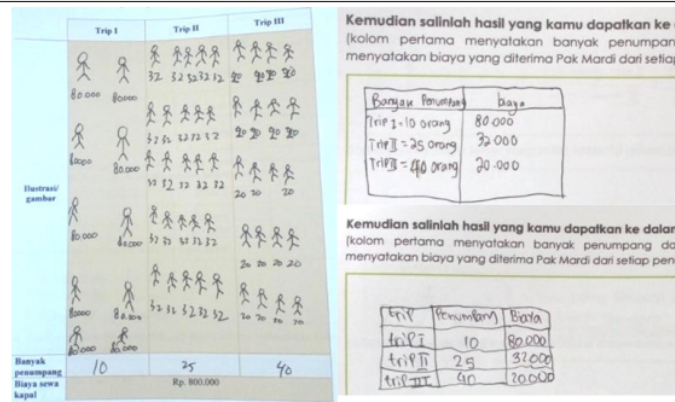 Trip I Trip II Trip III
32 32 32 32 32 20 20 20 20
80.000 80000
32 32 32 32 32 20 20 20 20
80000 80.000
32 32 32 32 32 20 20 20
Ilustrasi/
gambar
80.000 80.000 32 32 32 32 32
20 20 20 20
80000 80.000 32 32 32 32 32 20 20 20 20
80.000 80.000
Banyak
penumpang 10 25 40
Biaya sewa
kapal Rp. 800.000
Kemudian salinlah hasil yang kamu dapatkan ke
(kolom pertama menyatakan banyak penumpan
menyatakan biaya yang diterima Pak Mardi dari setia
Banyak Penumpang biaya
Trip I = 10 orang 80.000
Trip II = 25 orang 32.000
Trip III = 40 orang 20.000
Kemudian salinlah hasil yang kamu dapatkan ke dalar
(kolom pertama menyatakan banyak penumpang da
menyatakan biaya yang diterima Pak Mardi dari setiap pen
trip Penumpang Biaya
trip I 10 80.000
trip II 25 32000
trip III 40 20.000